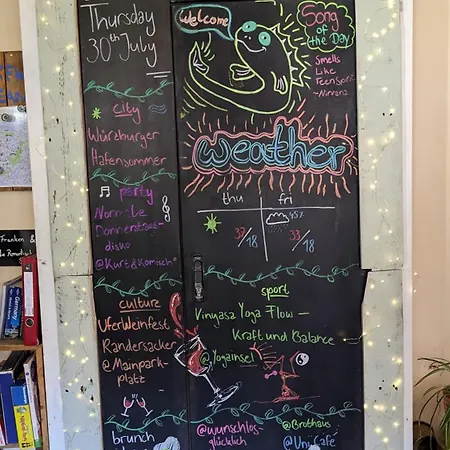 Thursday
30th July
Welcome
Song
of the Day
Smells
Like
Teen Spirit
-Nirvana
weather
thu
fri
37/18
45%
33/18
city
Würzburger
Hafensommer
party
Normale
Donnerstags-
disko
@Kurt&Komisch
culture
Uferweinfest
Randersacker
@Mainpark-
platz
brunch
sport
Vinyasa Yoga Flow –
Kraft und Balance
@Yogainsel
@wunschlos-
glücklich
@Brothaus
@Uni Café
Franken &
Germany